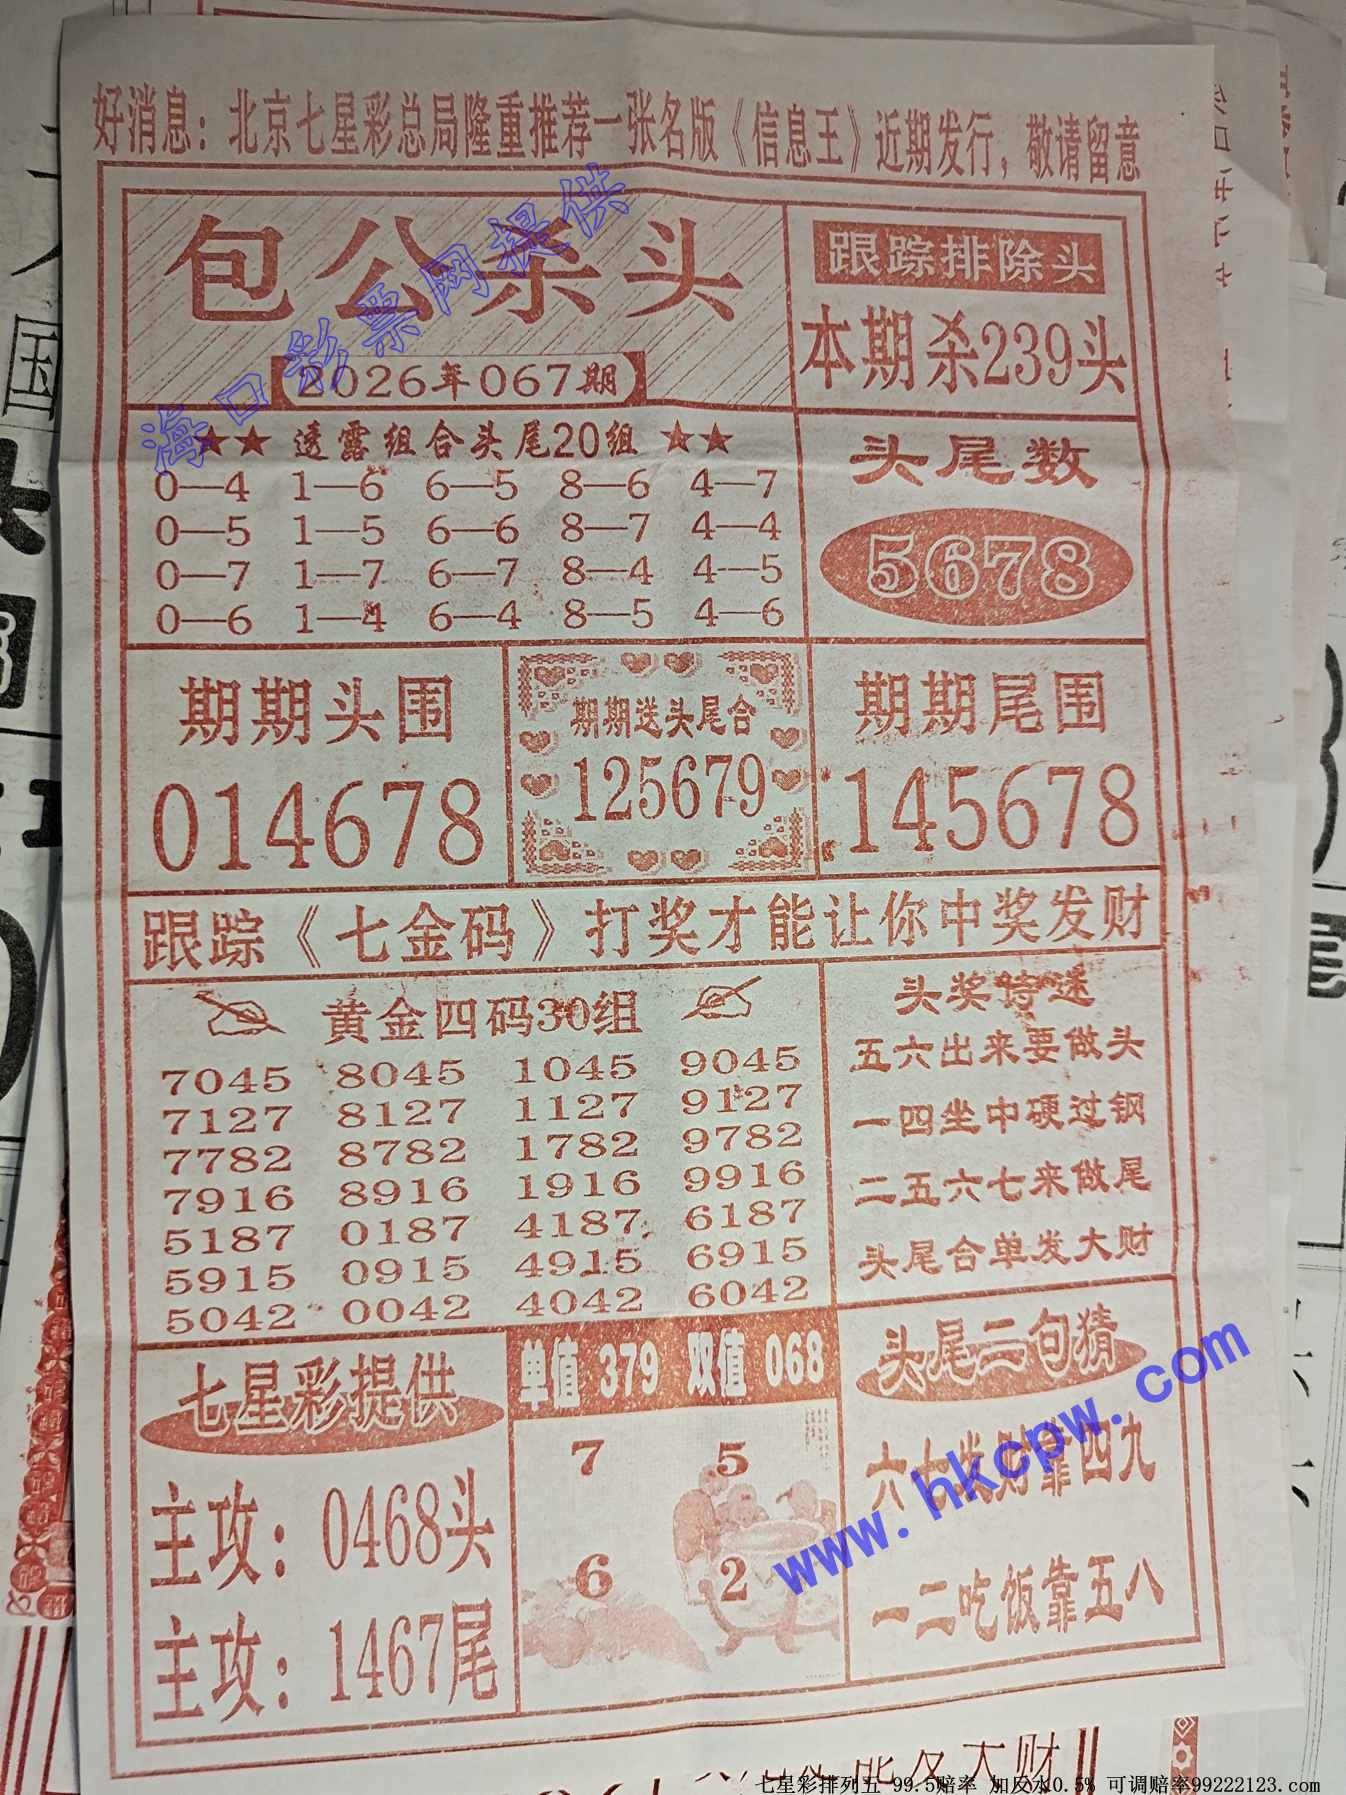 好消息：北京七星彩总局隆重推荐一张名版《信息王》近期发行，敬请留意
包公杀头
2026年067期
跟踪排除头
本期杀239头
★★ 透露组合头尾20组 ★★
0—4 1—6 6—5 8—6 4—7
0—5 1—5 6—6 8—7 4—4
0—7 1—7 6—7 8—4 4—5
0—6 1—4 6—4 8—5 4—6
头尾数
5678
期期头围
014678
期期送头尾合
125679
期期尾围
145678
跟踪《七金码》打奖才能让你中奖发财
黄金四码30组
7045 8045 1045 9045
7127 8127 1127 9127
7782 8782 1782 9782
7916 8916 1916 9916
5187 0187 4187 6187
5915 0915 4915 6915
5042 0042 4042 6042
头奖诗谜
五六出来要做头
一四坐中硬过钢
二五六七来做尾
头尾合单发大财
七星彩提供
主攻：0468头
主攻：1467尾
单值 379 双值 068
7 5
6 2
头尾二句猜
六七发财靠四九
一二吃饭靠五八
海口彩票网提供
www.hkcpw.com
七星彩排列五 99.5赔率 加反水0.5% 可调赔率99222123.com